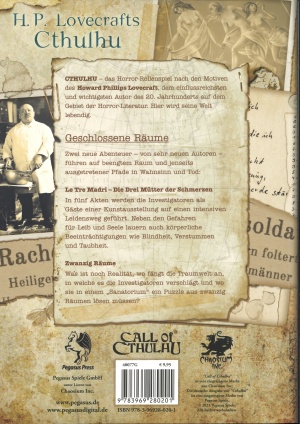 H. P. Lovecrafts
Cthulhu
CTHULHU – das Horror-Rollenspiel nach den Motiven
des Howard Phillips Lovecraft, dem einflussreichsten
und wichtigsten Autor des 20. Jahrhunderts auf dem
Gebiet der Horror-Literatur. Hier wird seine Welt
lebendig.
Geschlossene Räume
Zwei neue Abenteuer – von sehr neuen Autoren –
führen auf beengtem Raum und jenseits
ausgetretener Pfade in Wahnsinn und Tod:
Le Tre Madri – Die Drei Mütter der Schmerzen
In fünf Akten werden die Investigatoren als
Gäste einer Kunstausstellung auf einen intensiven
Leidensweg geführt. Neben den Gefahren
für Leib und Seele lauern auch körperliche
Beeinträchtigungen wie Blindheit, Verstummen
und Taubheit.
Zwanzig Räume
Was ist noch Realität, wo fängt die Traumwelt an,
in welche es die Investigatoren verschlägt und wo
sie in einem „Sanatorium“ ein Puzzle aus zwanzig
Räumen lösen müssen?
Rache
Heilige
solda
folter
männer
Pegasus Press
Pegasus Spiele GmbH
unter Lizenz von
Chaosium Inc.
www.pegasus.de
www.pegasusdigital.de
CALL OF
CTHULHU
CHAOSIUM
INC.
68077G
€ 9,95
9783969280201